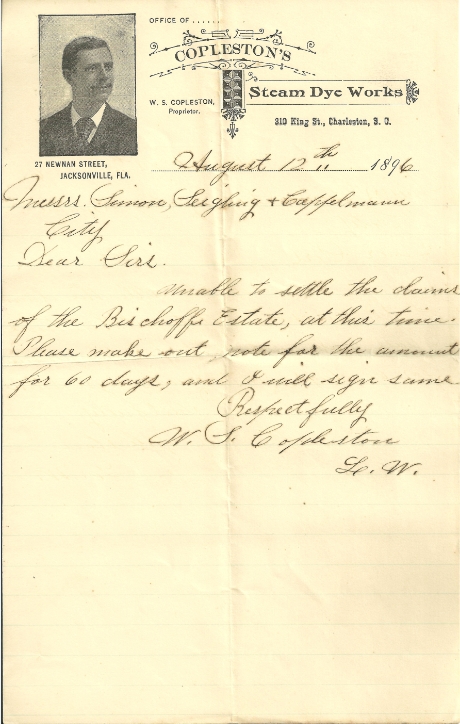 OFFICE OF ......
COPLESTON'S
Steam Dye Works
W. S. COPLESTON,
Proprietor.
310 King St., Charleston, S. C.
27 NEWNAN STREET,
JACKSONVILLE, FLA.
August 12th 1896
Messrs. Simon, Seigling & Cappelmann
City
Dear Sirs.
Unable to settle the claims
of the Bischoffs Estate, at this time.
Please make out, note for the amount
for 60 days, and I will sign same
Respectfully
W. S. Copleston
L. W.